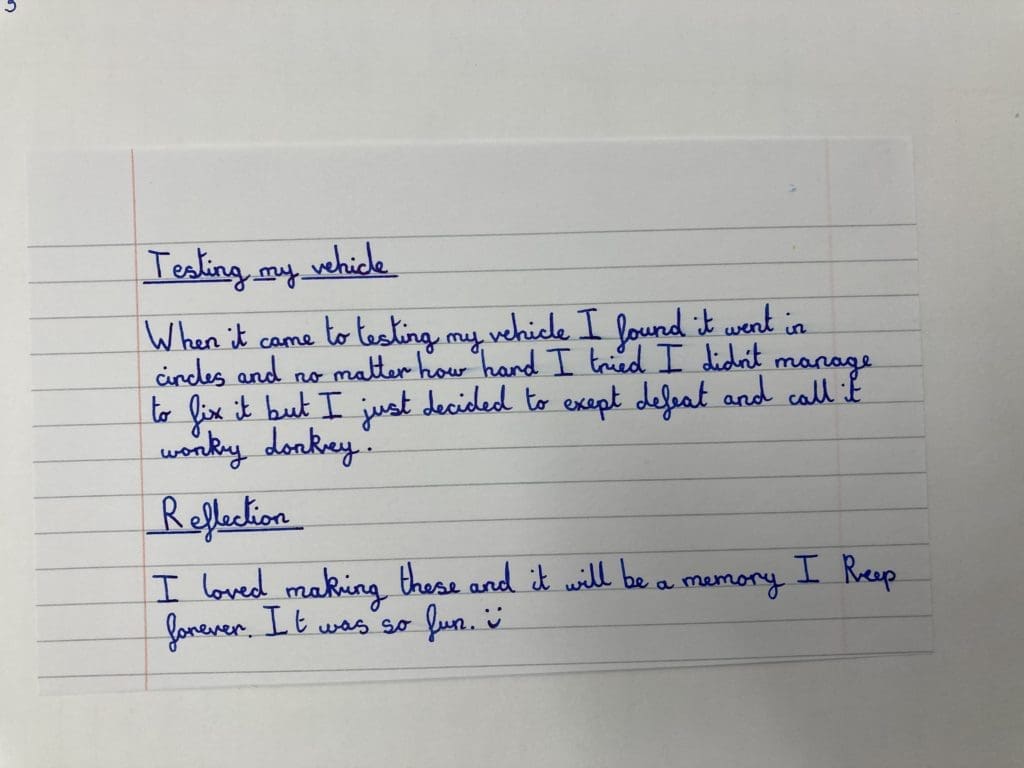 Testing my vehicle
When it came to testing my vehicle I found it went in
circles and no matter how hard I tried I didn't manage
to fix it but I just decided to exept defeat and call it
wonky donkey.
Reflection
I loved making these and it will be a memory I keep
forever. It was so fun. ü